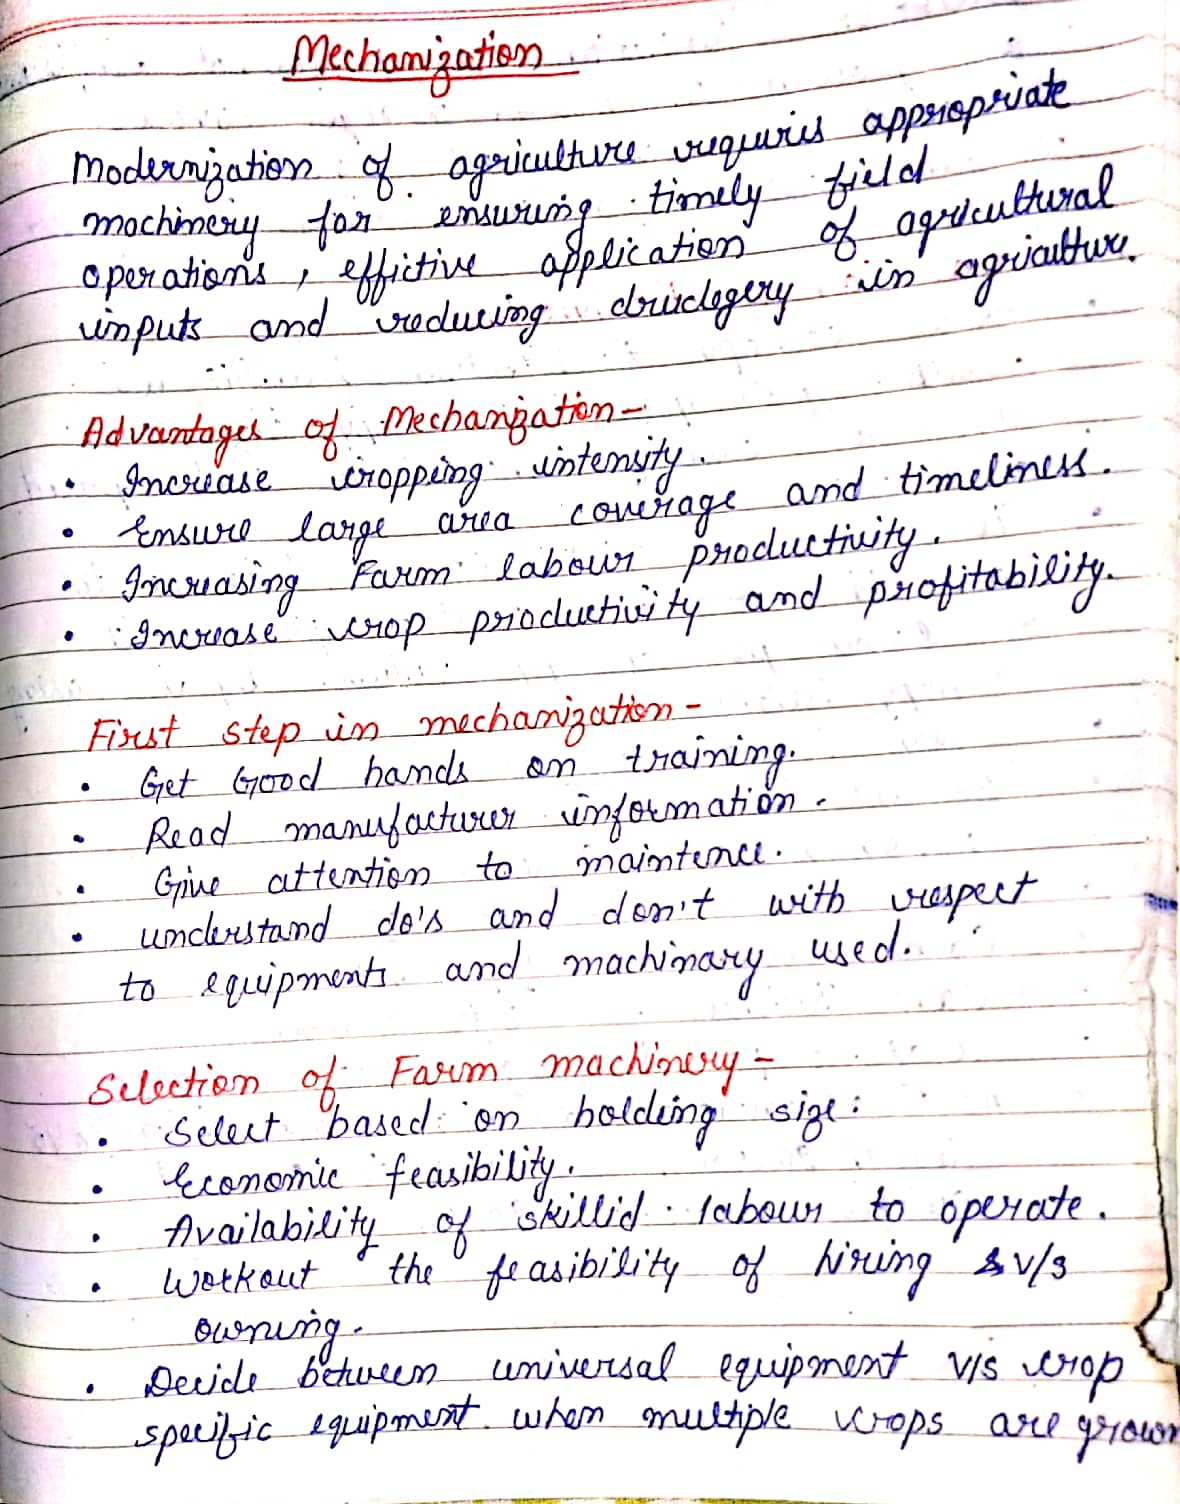 Mechanization
Modernization of agriculture requires appropriate
machinery for ensuring timely field
operations, effictive application of agricultural
inputs and reducing drudegery in agriculture.
Advantages of Mechanization-
• Increase cropping intensity.
• Ensure large area coverage and timeliness.
• Increasing Farm labour productivity.
• Increase crop productivity and profitability.
First step in mechanization-
• Get Good hands on training.
• Read manufacturer information.
• Give attention to maintence.
• understand do's and don't with respect
to equipments and machinary used.
Selection of Farm machinery-
• Select based on holding size.
• Economic feasibility.
• Availability of skillid labour to operate.
• Workout the feasibility of hiring v/s
owning.
• Decide between universal equipment v/s crop
specific equipment when multiple crops are grown